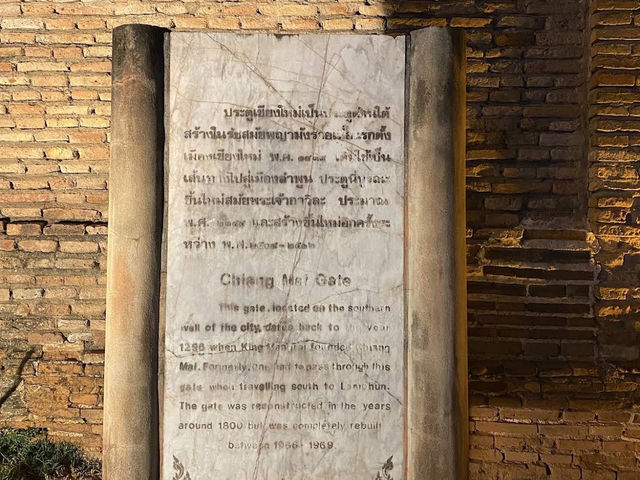 ประตูเชียงใหม่เป็นประตูด้านใต้
สร้างในรัชสมัยพญามังรายเมื่อแรกตั้ง
เมืองเชียงใหม่ พ.ศ. ๑๘๓๙ เคยใช้เป็น
เส้นทางไปสู่เมืองลำพูน ประตูนี้บูรณะ
ขึ้นใหม่สมัยพระเจ้ากาวิละ ประมาณ
พ.ศ. และสร้างขึ้นใหม่อีกครั้ง
หว่าง พ.ศ.
Chiang Mai Gate
This gate, located on the southern
wall of the city, dates back to the year
1296 when King Mangrai founded Chiang
Mai. Formerly, one had to pass through this
gate when travelling south to Lamphun.
The gate was reconstructed in the years
around 1800 but was completely rebuilt
between 1966-1969.